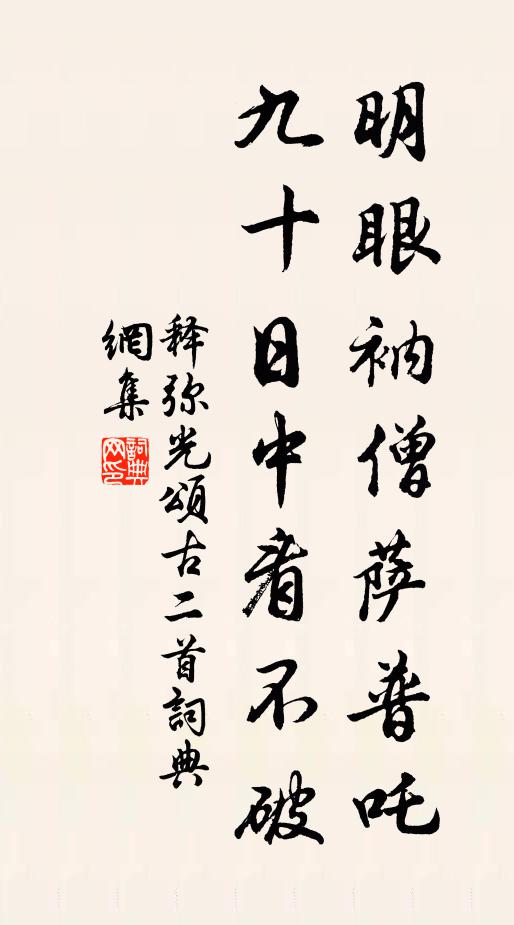 明眼衲僧萨普吒
九十日中看不破
释弥光頌古二首詞典
網集
詞典网印